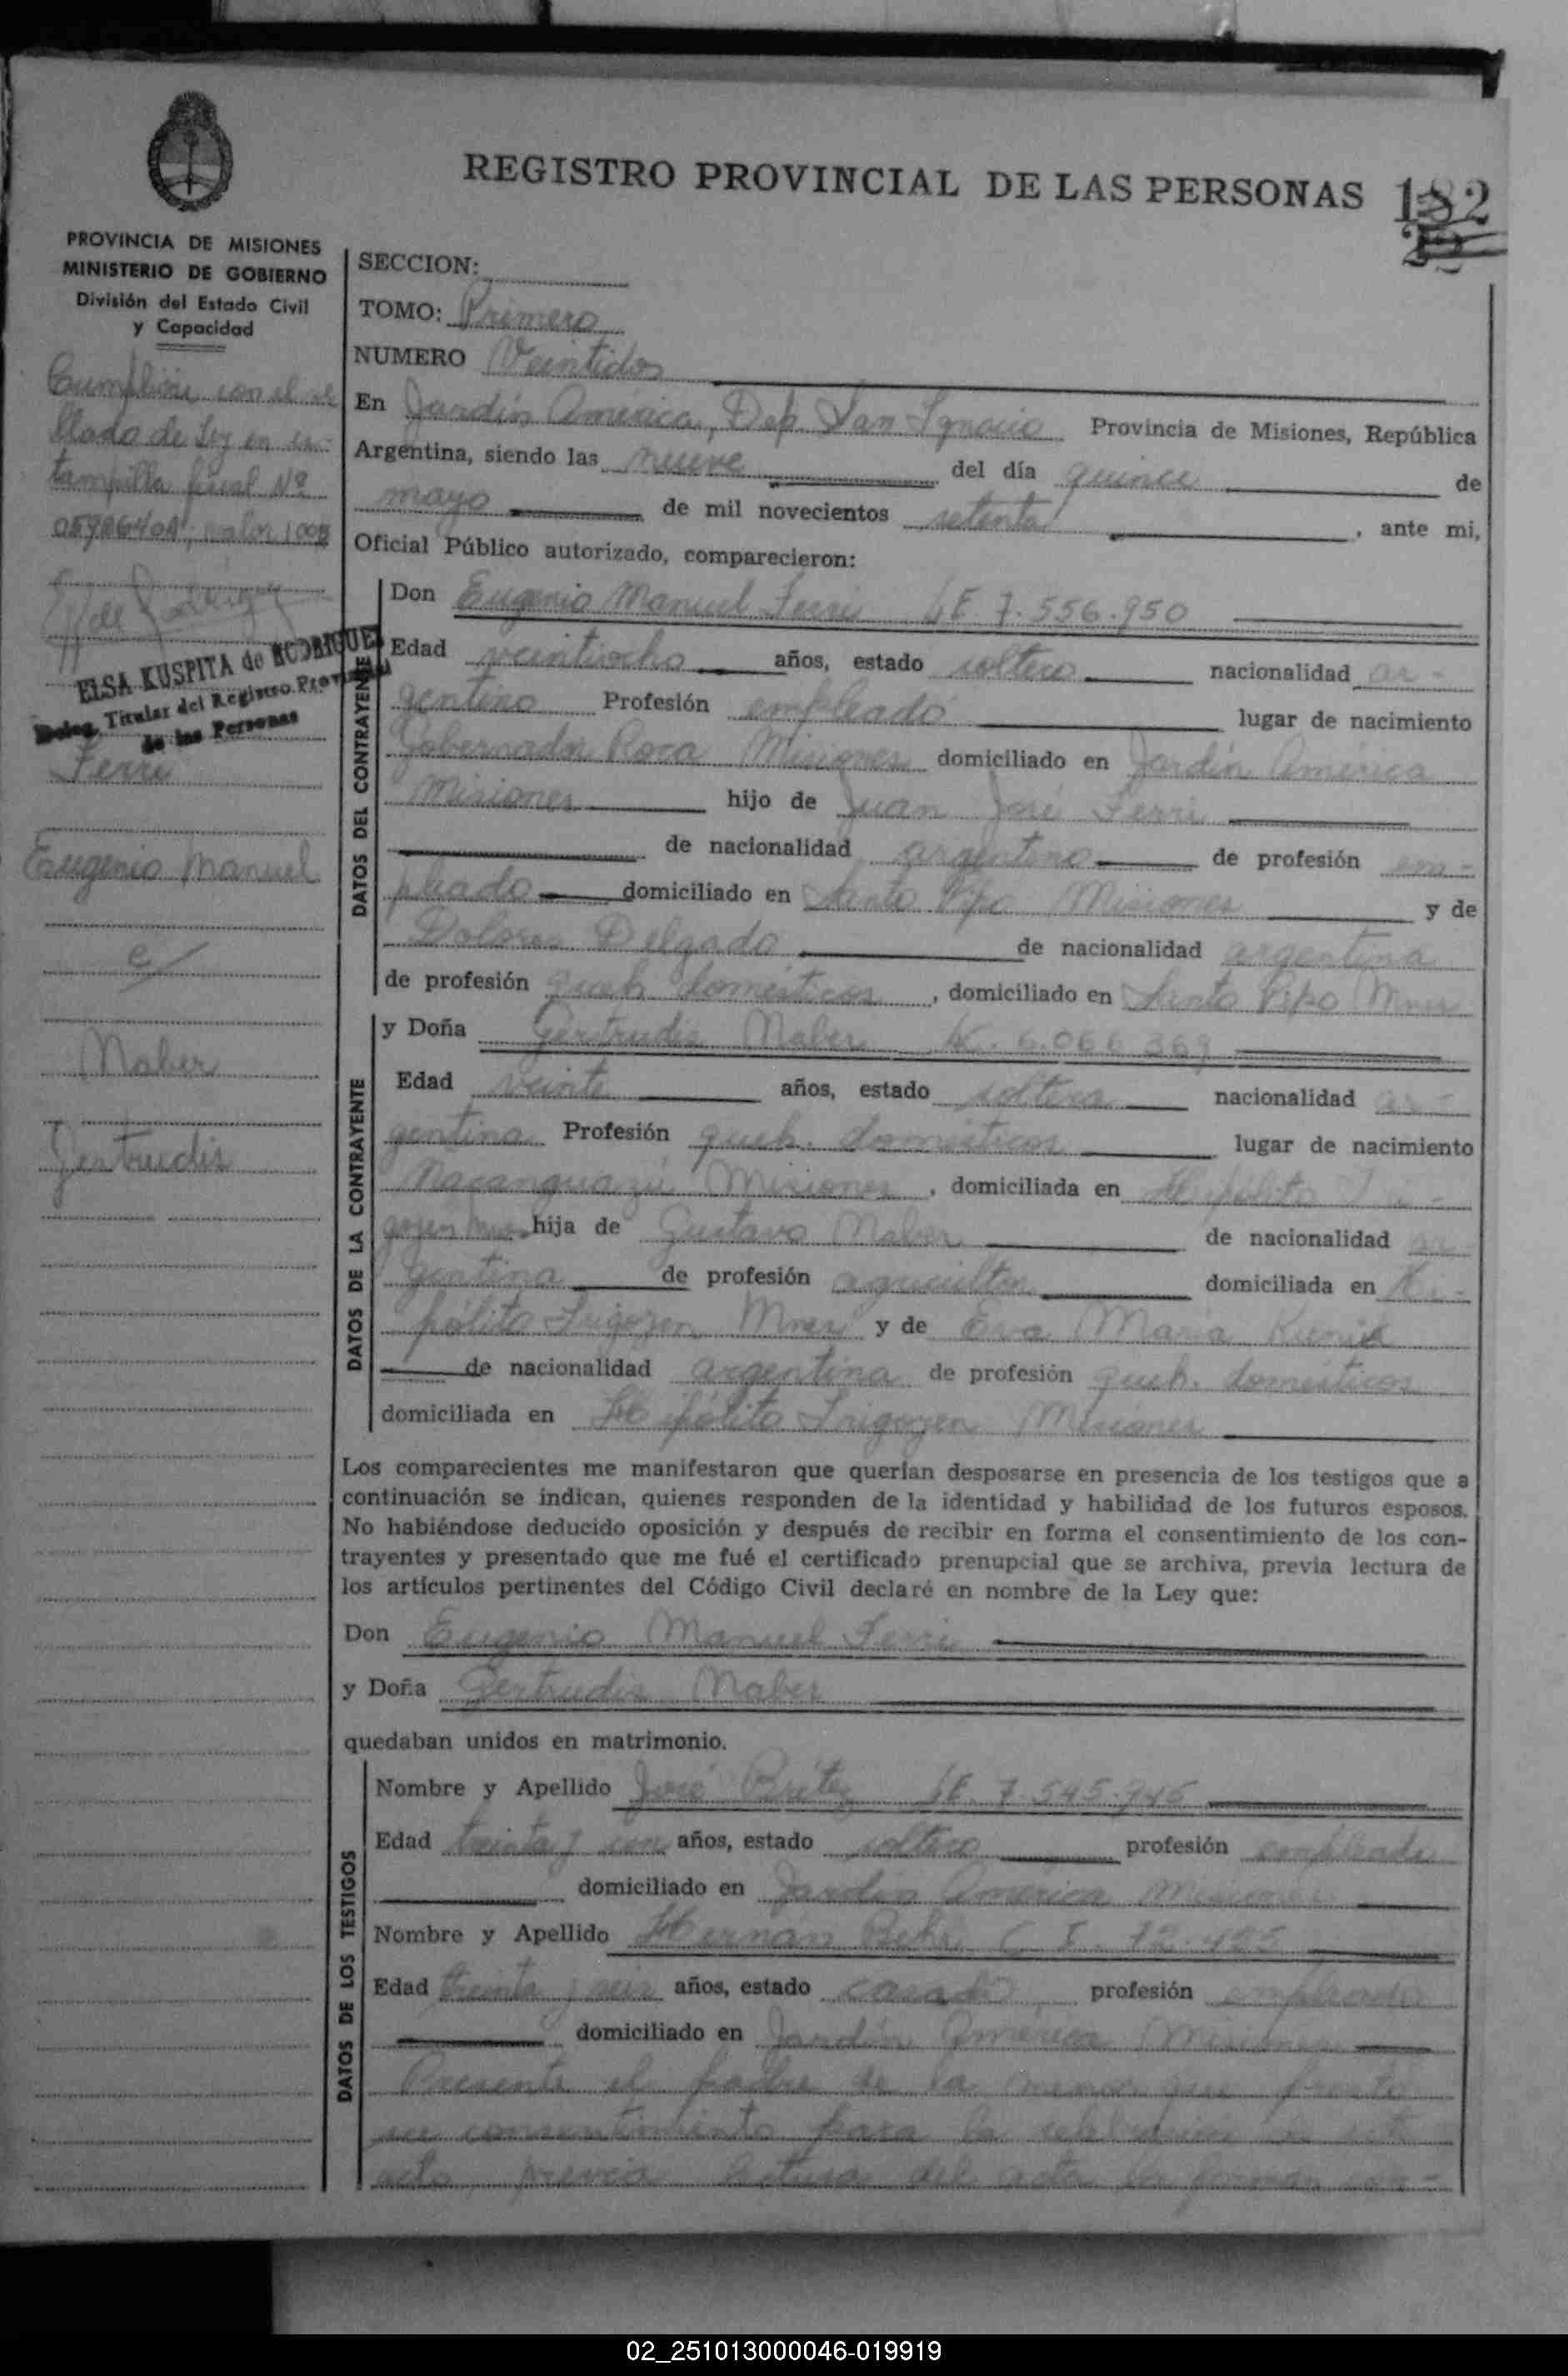 REGISTRO PROVINCIAL DE LAS PERSONAS 182
PROVINCIA DE MISIONES
MINISTERIO DE GOBIERNO
División del Estado Civil
y Capacidad
Cumplióse con el se
llado de Ley en es-
tampilla fiscal Nº
valor 100$
ELSA KUSPITA de RODRIGUEZ
Deleg. Titular del Registro Provincial
de las Personas
Ferri
Eugenio Manuel
c/
Naber
Gertrudis
SECCION:
TOMO: Primero
NUMERO Veintidos
En Jardín America, Dep. San Ignacio Provincia de Misiones, República
Argentina, siendo las nueve del día quince de
mayo de mil novecientos setenta, ante mi,
Oficial Público autorizado, comparecieron:
DATOS DEL CONTRAYENTE
Don Eugenio Manuel Ferri LE. 7.556.950
Edad veintiocho años, estado soltero nacionalidad ar-
gentino Profesión empleado lugar de nacimiento
Gobernador Roca Misiones domiciliado en Jardín América
Misiones hijo de Juan José Ferri
de nacionalidad argentino de profesión em-
pleado domiciliado en Santo Pipo Misiones y de
Dolores Delgado de nacionalidad argentina
de profesión queh. domésticos, domiciliado en Santo Pipo Mnes
DATOS DE LA CONTRAYENTE
y Doña Gertrudis Naber LC. 6.066.369
Edad veinte años, estado soltera nacionalidad ar-
gentina Profesión queh. domésticos lugar de nacimiento
Ñacanguazú Misiones, domiciliada en Hipólito Iri-
goyen Mnes hija de Gustavo Naber de nacionalidad ar-
gentina de profesión agricultor domiciliada en Hi-
pólito Irigoyen Mnes y de Eva María
de nacionalidad argentina de profesión queh. domésticos
domiciliada en Hipólito Irigoyen Misiones
Los comparecientes me manifestaron que querían desposarse en presencia de los testigos que a
continuación se indican, quienes responden de la identidad y habilidad de los futuros esposos.
No habiéndose deducido oposición y después de recibir en forma el consentimiento de los con-
trayentes y presentado que me fué el certificado prenupcial que se archiva, previa lectura de
los artículos pertinentes del Código Civil declaré en nombre de la Ley que:
Don Eugenio Manuel Ferri
y Doña Gertrudis Naber
quedaban unidos en matrimonio.
DATOS DE LOS TESTIGOS
Nombre y Apellido José Britez LE. 7.545.
Edad treinta y años, estado soltero profesión empleado
domiciliado en Jardín America Misiones
Nombre y Apellido Hernán C I.
Edad treinta y seis años, estado casado profesión empleado
domiciliado en Jardín America Misiones
Presente el padre de la menor que presta
su consentimiento para la celebración de este
acto, previa lectura del acta la firman con-
02_251013000046-019919